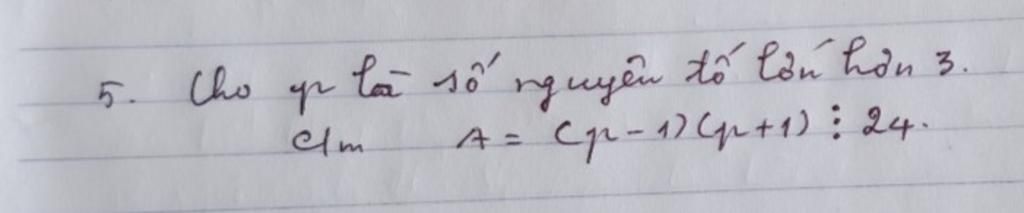 5. Cho p là số nguyên tố lớn hơn 3.
C/m A = (p-1)(p+1) ⋮ 24.